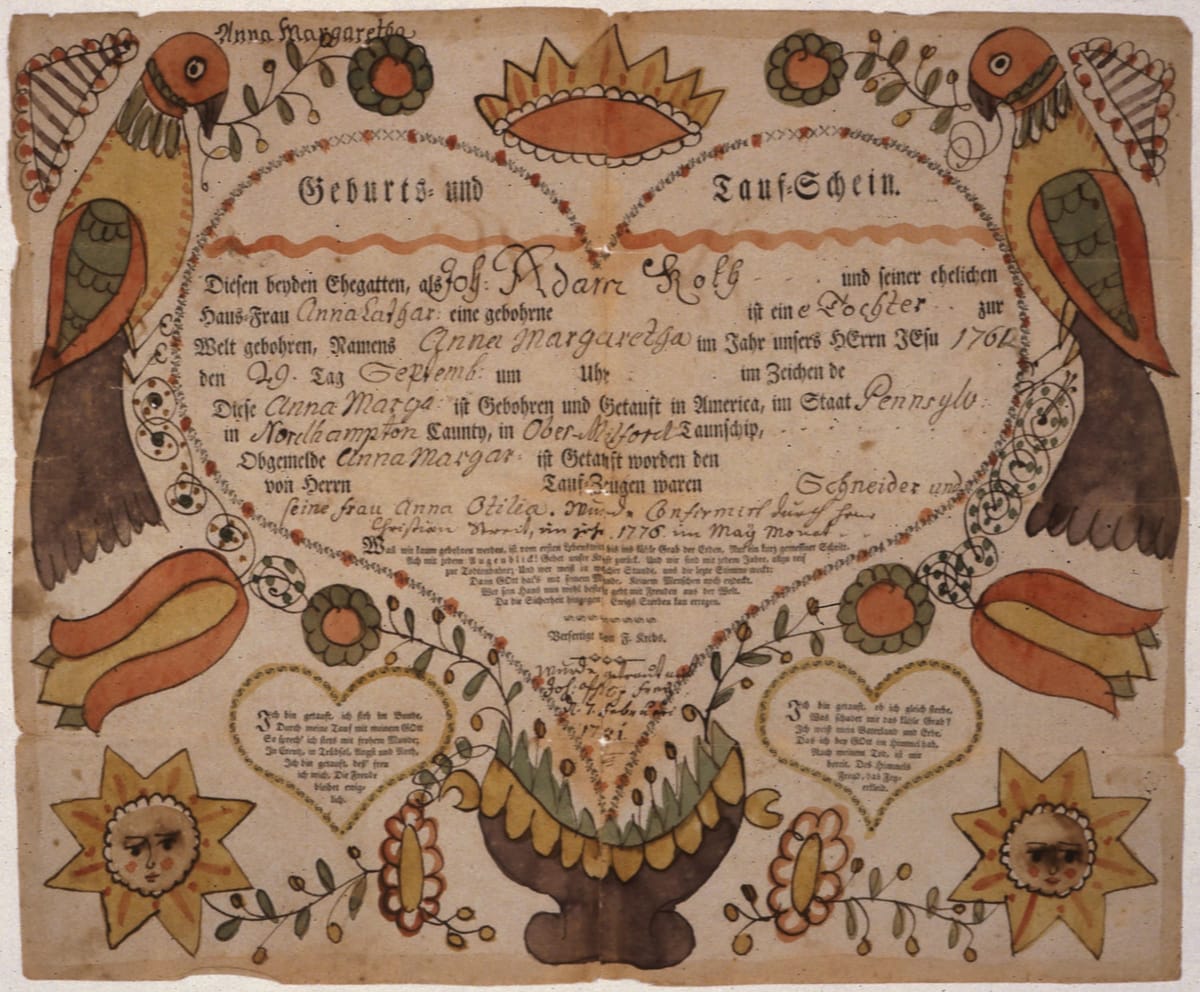 Anna Margaretha
Geburts- und Tauf-Schein.
Diesen beyden Ehegatten, als Joh: Adam Kolb und seiner ehelichen
Haus-Frau Anna Cathar: eine gebohrne ist eine Tochter zur
Welt gebohren, Namens Anna Margaretha im Jahr unsers HErrn JEsu 1761
den 29. Tag Septemb: um Uhr im Zeichen de
Diese Anna Marga: ist Gebohren und Getauft in America, im Staat Pennsylv:
in Northampton Caunty, in Ober-Milford Taunschip,
Obgemelde Anna Margar: ist Getauft worden den
von Herrn Tauf-Zeugen waren Schneider und
seine frau Anna Otilia. Wurde Confirmirt durch
Christian im 1776. im May Monat
Was wir kaum gebohren werden, ist vom ersten Lebenstritt bis ins kühle Grab der Erden, Nur ein kurz gemessner Schritt.
Ach mit jedem Augenblick! Gehet unser Kraft zurück, Und wir sind mit jedem Jahre, allzu reif
zur Todtenbahre; Und wer weiß in welcher Stunde, uns die lezte Stimme weckt;
Dann GOtt hat's mit seinem Munde, Keinem Menschen noch endeckt.
Wer sein Haus nun wohl bestellt geht mit Freuden aus der Welt.
Da die Sicherheit hingegen; Ewigs Sterben kan erregen.
Verfertigt von F. Krebs.
wurde getraut
Joh:
d. 7. Februari
1781
Ich bin getauft, ich steh im Bunde,
Durch meine Tauf mit meinem GOtt
So sprech' ich stets mit frohem Munde;
In Creutz, in Trübsal, Angst und Noth,
Ich bin getauft, deß' freu
ich mich, Die Freude
bleibet ewig-
lich.
Ich bin getauft, ob ich gleich sterbe,
Was schadet mir das kühle Grab?
Ich weiß mein Vaterland und Erbe,
Das ich bey GOtt im Himmel hab.
Nach meinem Tod, ist mir
bereit, Des Himmels
Freud, das Fey-
erkleid.